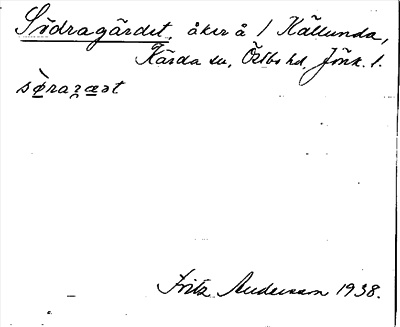 Södragärdet, åker å 1 Källunda,
Kärda sn, Östbo hd, Jönk. l.
sø̀raʒæət
Fritz Andersson 1938.